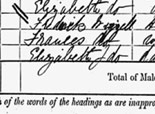 Elizabeth do
Frances do
Elizabeth J do
Total of Male
n of the words of the headings as are inappro